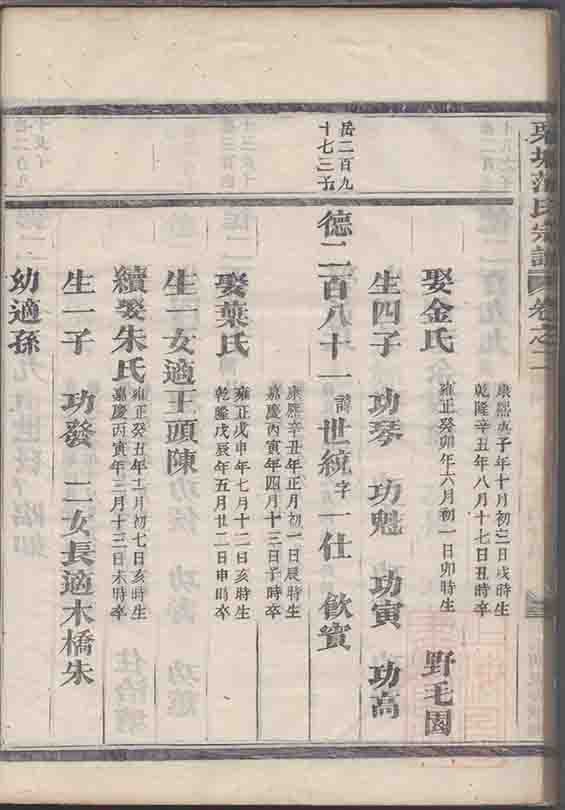 氏宗譜 卷之二
康熙庚子年十月初三日戌時生
乾隆辛丑年八月十七日丑時卒
娶金氏 雍正癸卯年六月初一日卯時生 野毛園
生四子 功琴 功魁 功寅 功高
岳二百九
十七三子
德二百八十一 諱世統字一仕 飲賓
康熙辛丑年正月初一日辰時生
嘉慶丙寅年四月十三日子時卒
娶葉氏 雍正戊申年七月十二日亥時生
乾隆戊辰年五月廿二日申時卒
生一女適王頭陳
續娶朱氏 雍正癸丑年十二月初七日亥時生
嘉慶丙寅年三月十三日未時卒
生一子 功發 二女長適木橋朱
幼適孫